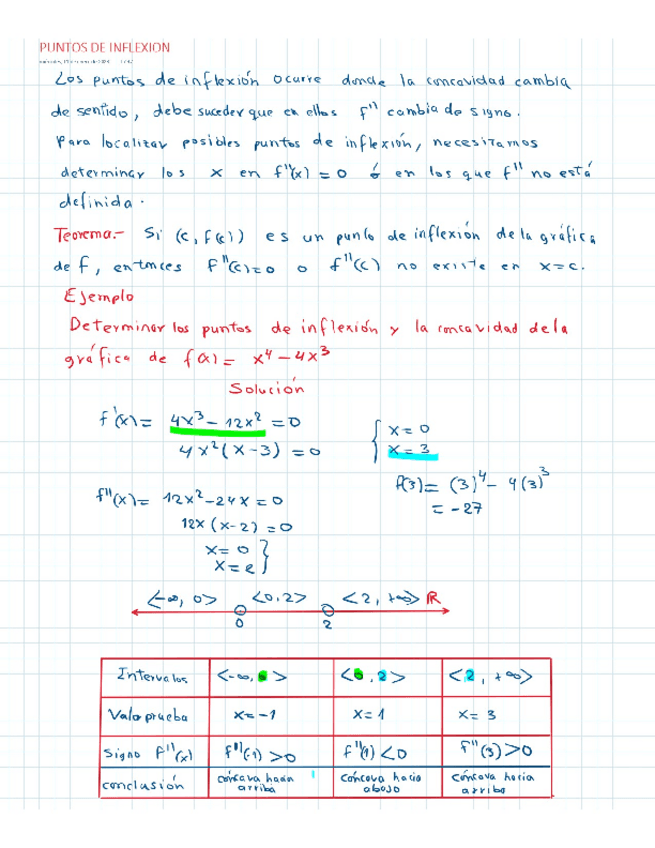 PUNTOS DE INFLEXION
Los puntos de inflexión ocurre donde la concavidad cambia
de sentido, debe suceder que en ellos f'' cambia de signo.
Para localizar posibles puntos de inflexión, necesitamos
determinar los x en f''(x) = 0 ó en los que f'' no está
definida.
Teorema.- Si (c, f(c)) es un punto de inflexión de la gráfica
de f, entonces f''(c)=0 o f''(c) no existe en x=c.
Ejemplo
Determinar los puntos de inflexión y la concavidad de la
gráfica de f(x) = x⁴ - 4x³
Solución
f'(x) = 4x³ - 12x² = 0
4x²(x-3) = 0
{ x = 0
x = 3
f(3) = (3)⁴ - 4(3)³
= -27
f''(x) = 12x² - 24x = 0
12x (x-2) = 0
x = 0 }
x = 2 }
<-∞, 0> <0,2> <2, +∞> ℝ
0 2
Intervalos <-∞, 0> <0, 2> <2, +∞>
Valor prueba x = -1 x = 1 x = 3
Signo f''(x) f''(-1) >0 f''(1) <0 f''(3) >0
conclusión cóncava hacia arriba cóncava hacia abajo cóncava hacia arriba